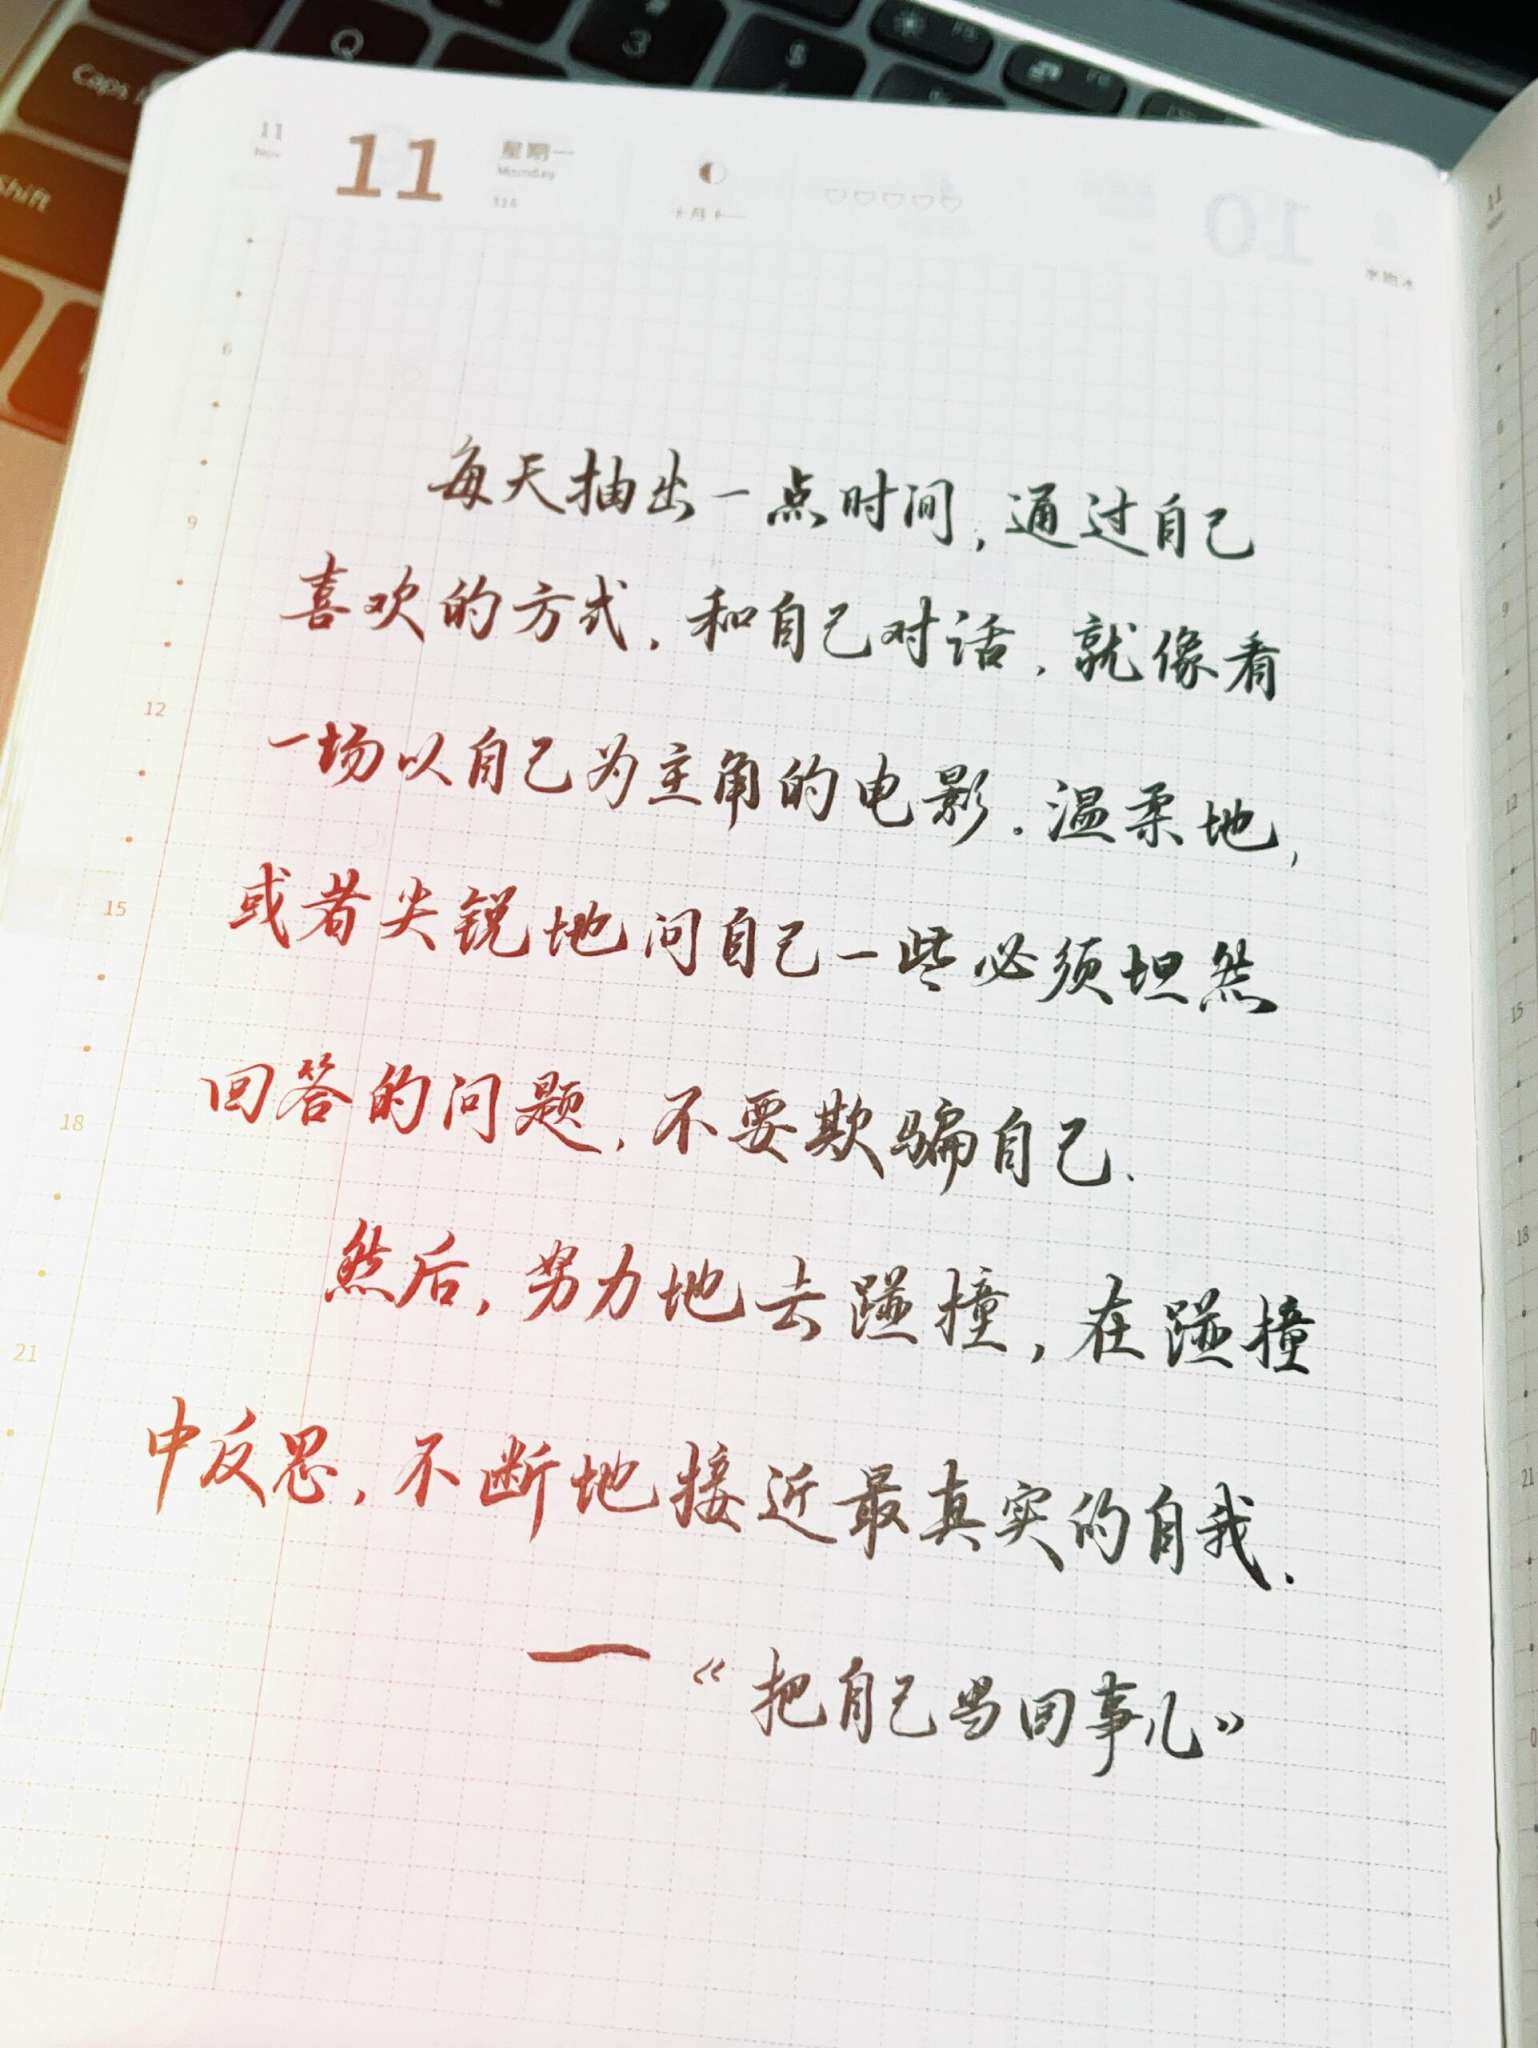 Caps
Q
3
$
4
shift
11
Nov
11
星期一
Monday
316
十月十一
6
9
12
15
18
21
每天抽出一点时间，通过自己
喜欢的方式，和自己对话，就像看
一场以自己为主角的电影。温柔地，
或者尖锐地问自己一些必须坦然
回答的问题，不要欺骗自己.
然后，努力地去碰撞，在碰撞
中反思，不断地接近最真实的自我.
—《把自己当回事儿》
11
6
9
12
15
18
21
0